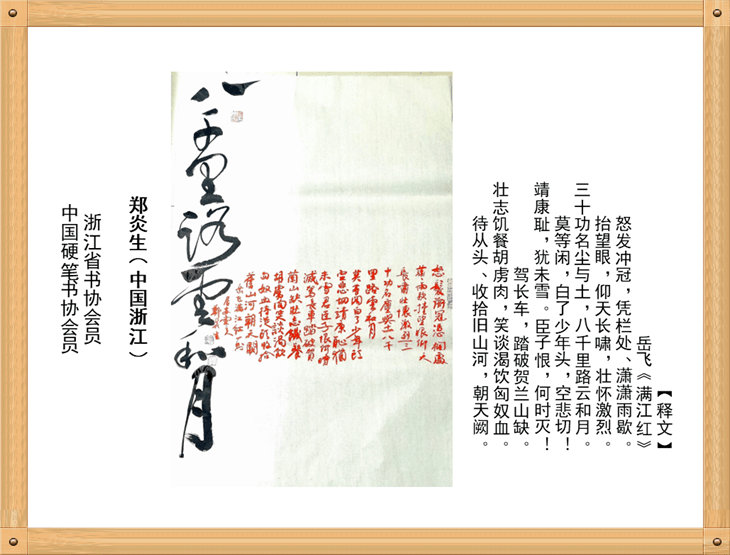 【释文】
岳飞《满江红》
怒发冲冠，凭栏处、潇潇雨歇。
抬望眼，仰天长啸，壮怀激烈。
三十功名尘与土，八千里路云和月。
莫等闲，白了少年头，空悲切！
靖康耻，犹未雪。臣子恨，何时灭！
驾长车，踏破贺兰山缺。
壮志饥餐胡虏肉，笑谈渴饮匈奴血。
待从头、收拾旧山河，朝天阙。
八千里路云和月
怒髮衝冠憑欄處
潇潇雨歇抬望眼仰天
長嘯壯懷激烈三
十功名塵與土八千
里路雲和月
莫等闲白了少年头
空悲切靖康恥猶
未雪臣子恨何時
滅駕長車踏破賀
蘭山缺壯志饑餐
胡虜肉笑談渴飲
匈奴血待從頭收拾
舊山河朝天闕
郑炎生（中国浙江）
浙江省书协会员
中国硬笔书协会员